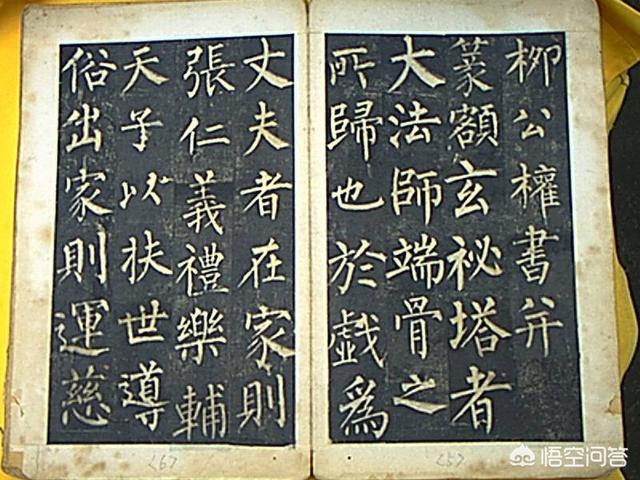 柳公權書并
篆額玄祕塔者
大法師端骨之
所歸也於戲為
丈夫者在家則
張仁義禮樂輔
天子以扶世導
俗出家則運慈
<6>
<5>
悟空问答